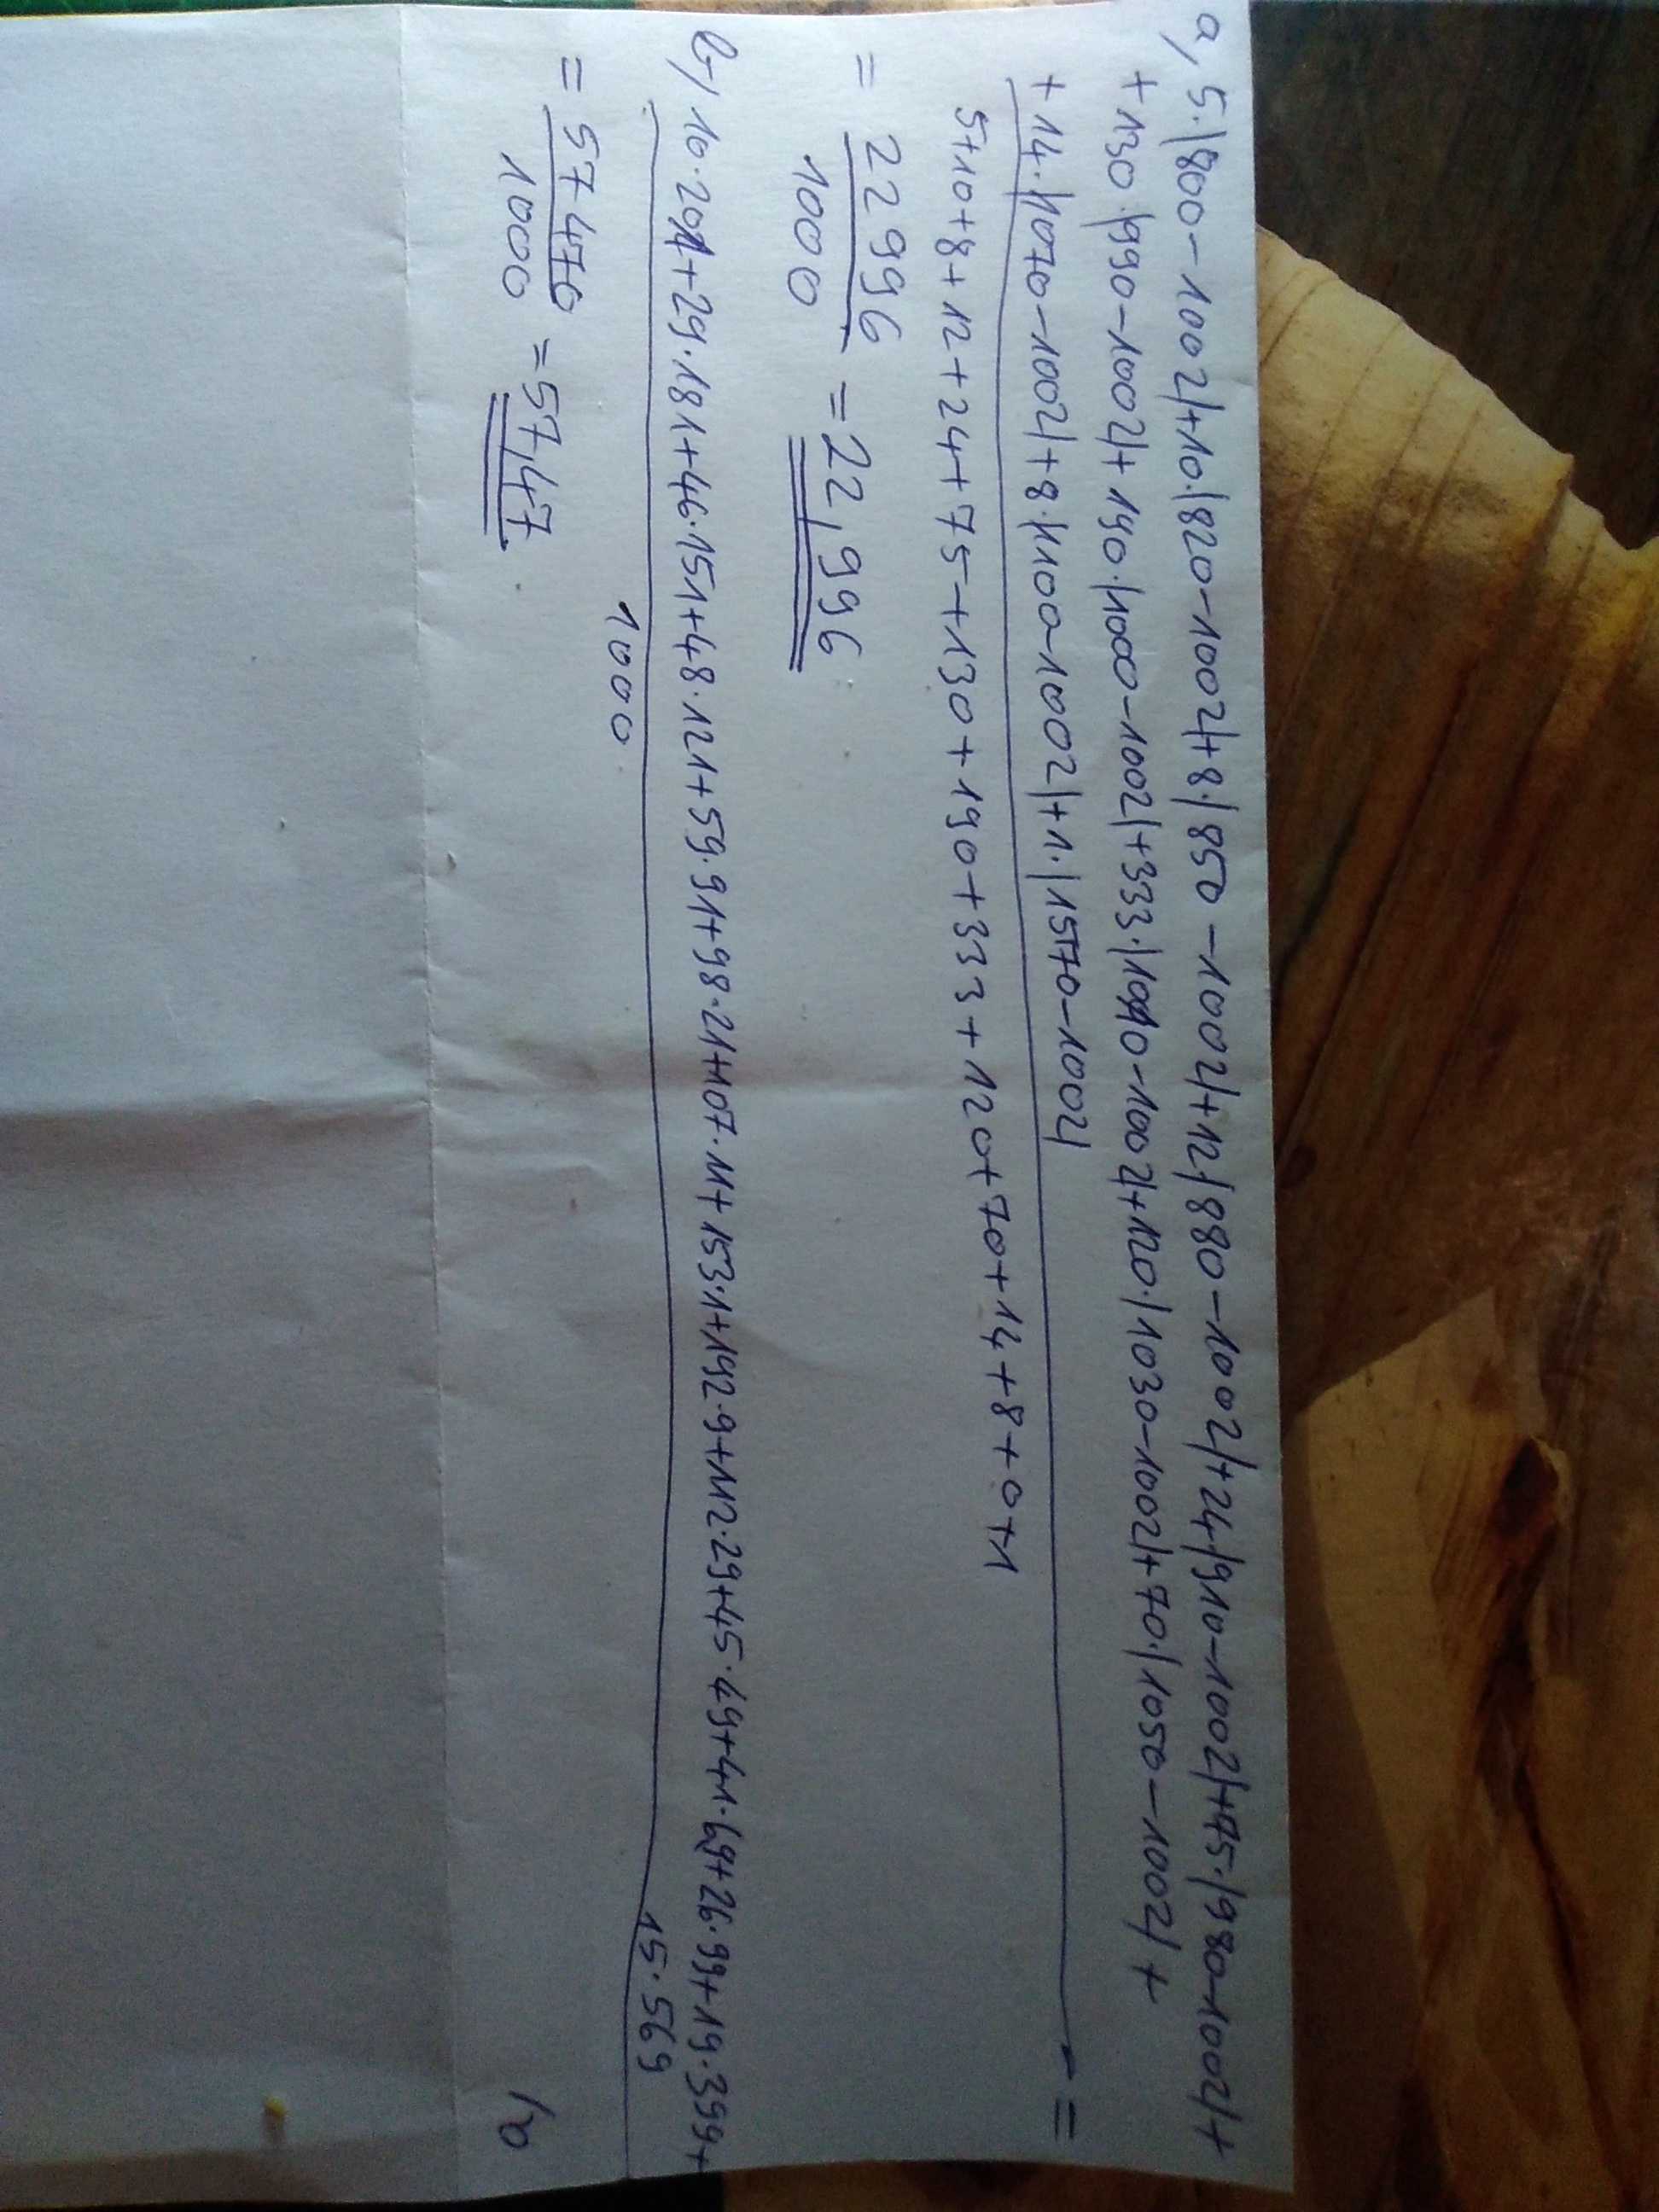 a, 5·|800-1002|+10·|820-1002|+8·|850-1002|+12·|880-1002|+24·|910-1002|+75·|980-1002|+
+130·|990-1002|+190·|1000-1002|+333·|1010-1002|+120·|1030-1002|+70·|1050-1002|+
+14·|1070-1002|+8·|1100-1002|+1·|1570-1002| =
5+10+8+12+24+75+130+190+333+120+70+14+8+0+1
= 22996/1000 = 22,996
b, 10·201+29·181+46·151+48·121+59·91+98·21+107·11+153·1+192·9+112·29+45·49+41·69+26·99+19·399+
15·569
1000
= 57470/1000 = 57,47